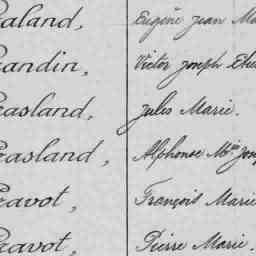 aland, Eugène Jean
andin, Victor Joseph
easland, Jules Marie.
easland, Alphonse M^ie
avot, François Marie
avot, Pierre Marie.